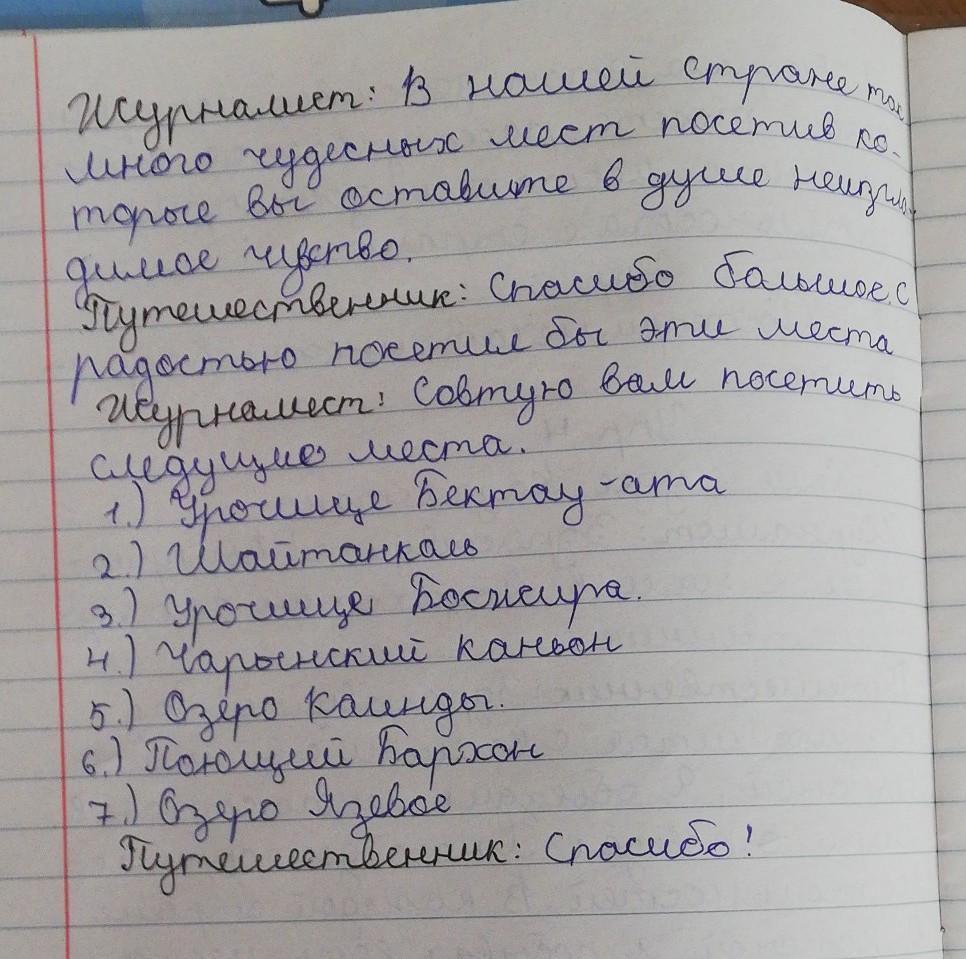 Журналист: В нашей стране так
много чудесных мест посетив ко-
торые вы оставите в душе неизгла
димое чувство.
Путешественник: Спасибо большое, с
радостью посетил бы эти места
Журналист: Совтую вам посетить
следущие места.
1.) Урочище Бектау-ата
2.) Шайтанколь
3.) Урочище Босжира.
4.) Чарынский каньон
5.) Озеро Каинды.
6.) Поющий Бархон
7.) Озеро Язевое
Путешественник: Спасибо!